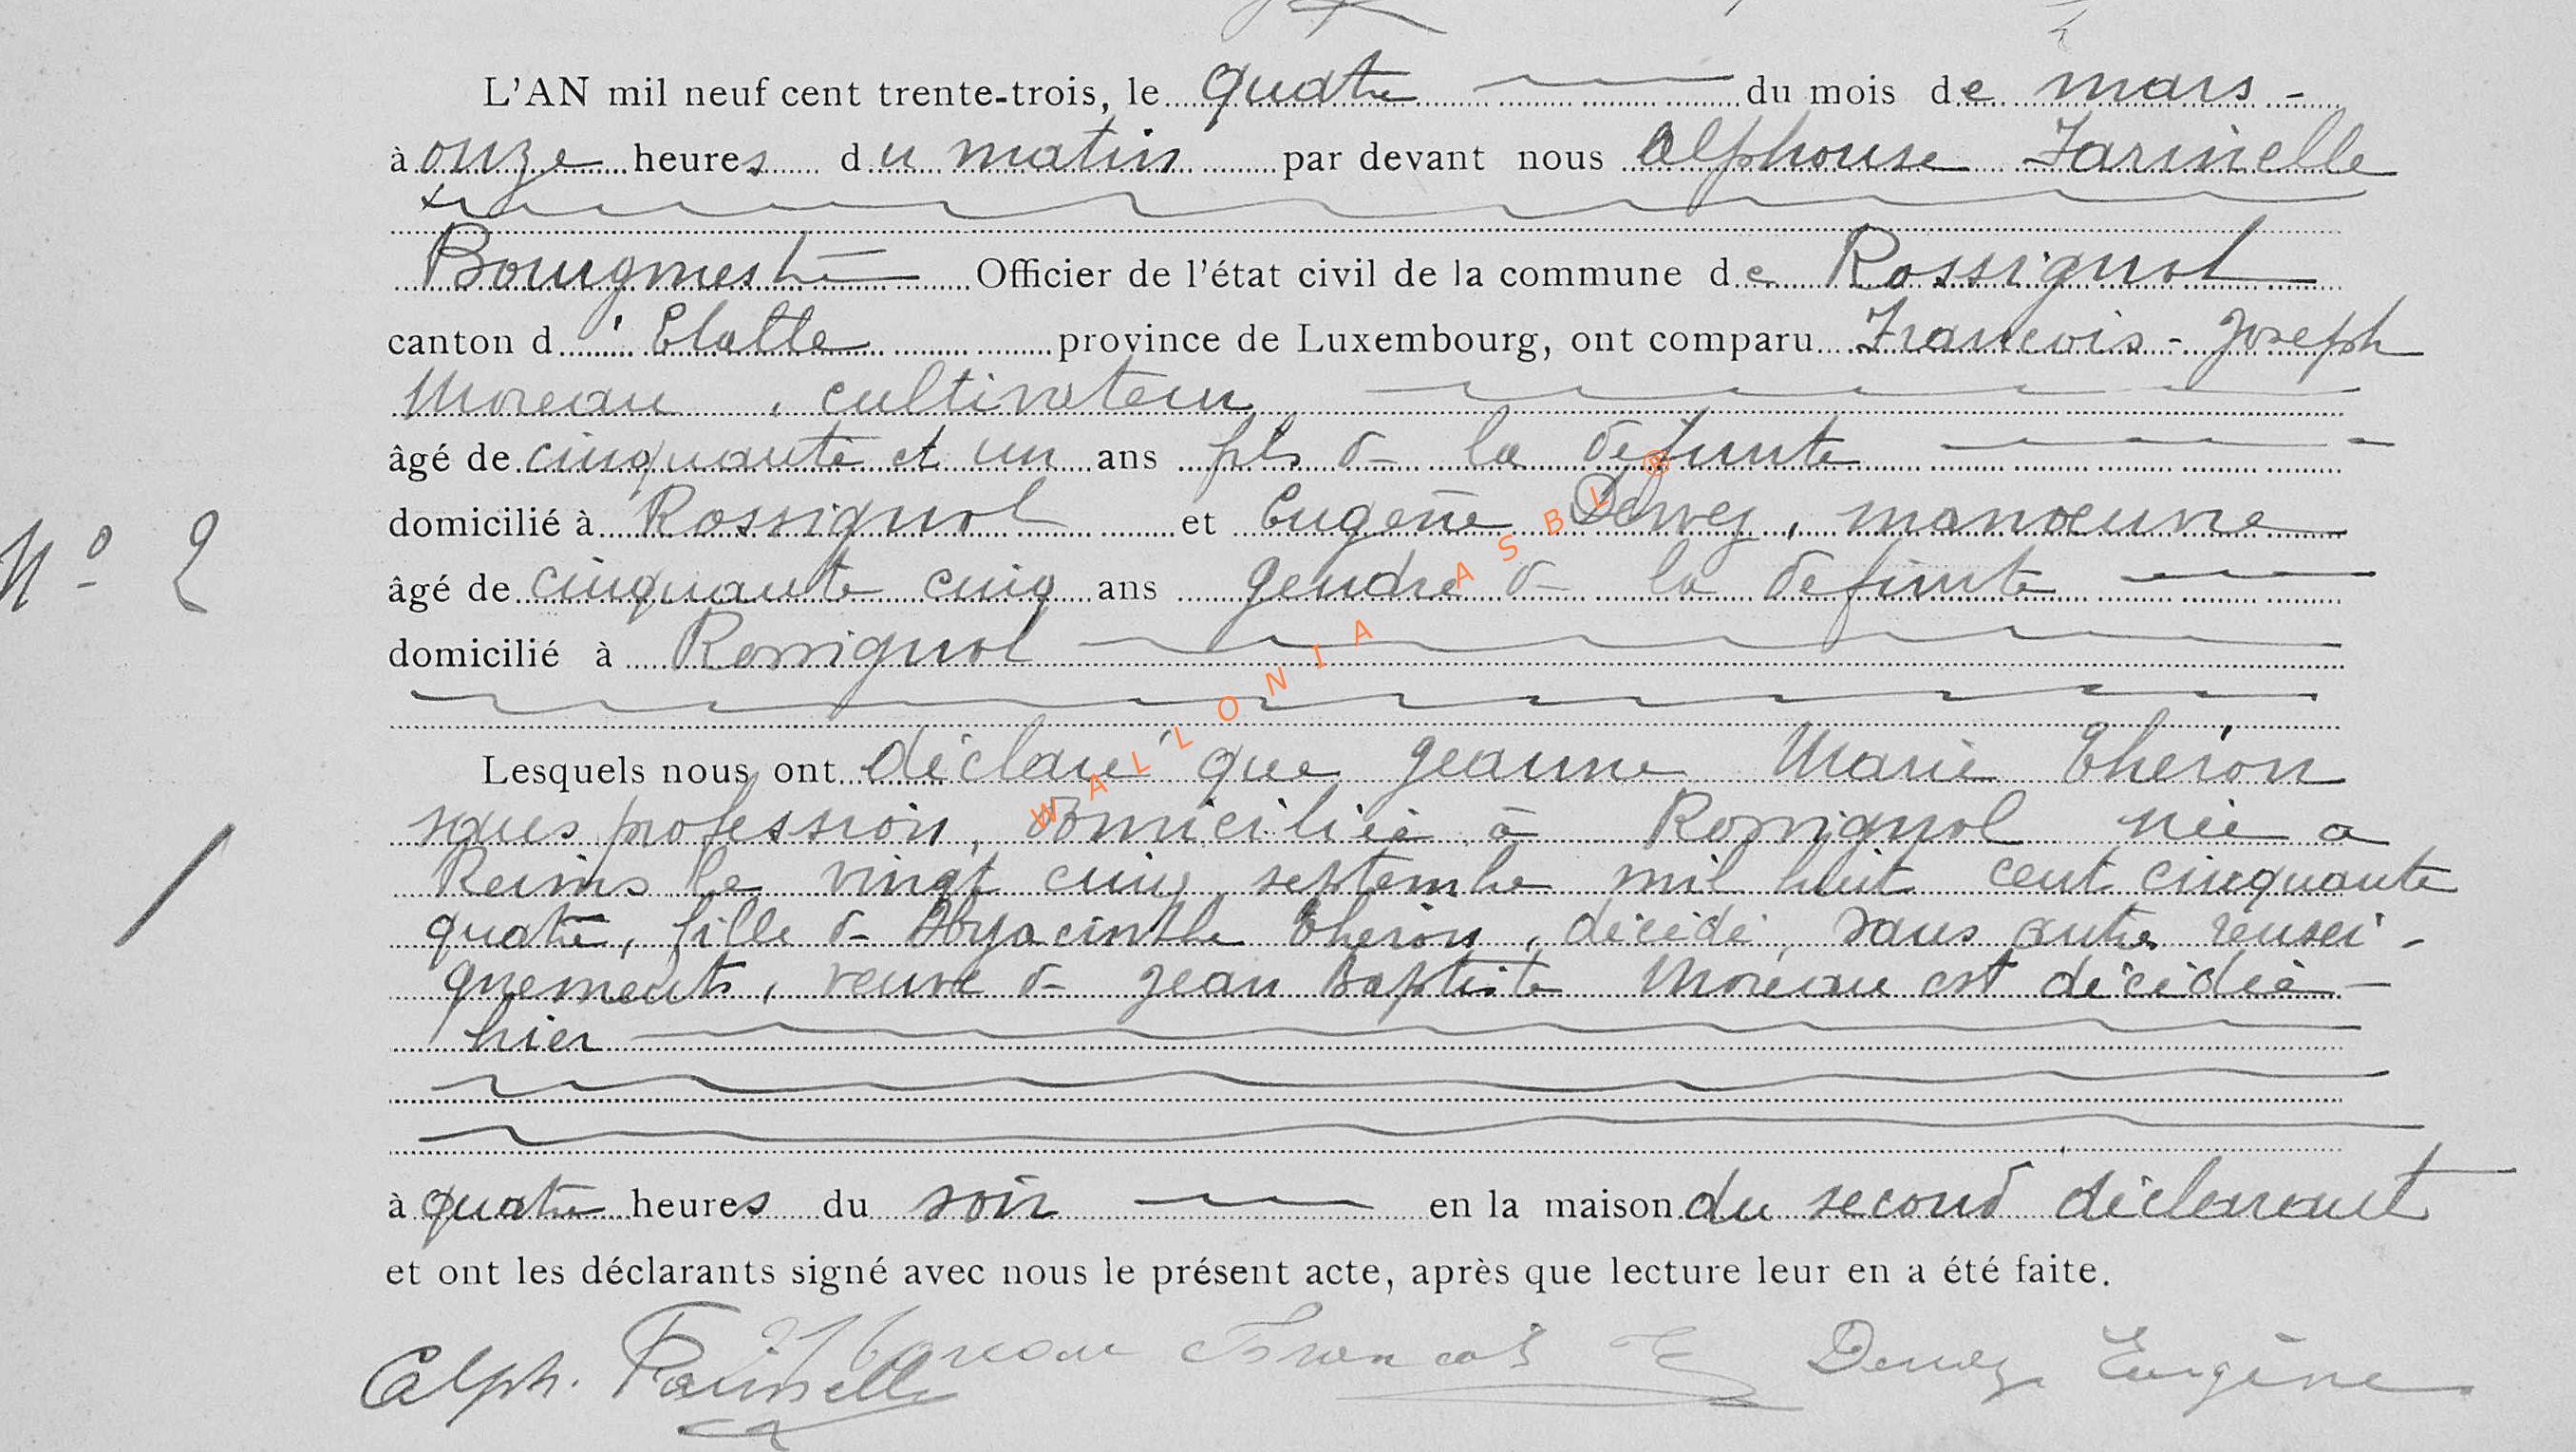 L'AN mil neuf cent trente-trois, le quatre du mois de mars -
à onze heures du matin par devant nous Alphonse Farinelle
Bourgmestre Officier de l'état civil de la commune de Rossignol
canton d' Etalle province de Luxembourg, ont comparu Francois - Joseph
Moreau, cultivateur
âgé de cinquante et un ans fils de la defunte
domicilié à Rossignol et Eugène manoeuvre
N° 2
âgé de cinquante cinq ans gendre de la defunte
domicilié à Rossignol
Lesquels nous ont déclaré que Jeanne Marie Theron
sans profession, domiciliée à Rossignol née a
Reims le vingt cinq septembre mil huit cent cinquante
quatre, fille de Hyacinthe Theron, décédé, sans autres rensei-
gnements, veuve de Jean Baptiste Moreau est décédée -
hier
à quatre heures du soir en la maison du second déclarant
et ont les déclarants signé avec nous le présent acte, après que lecture leur en a été faite.
Alph. Farinelle Moreau Francois Eugène
WALLONIA ASBL ®